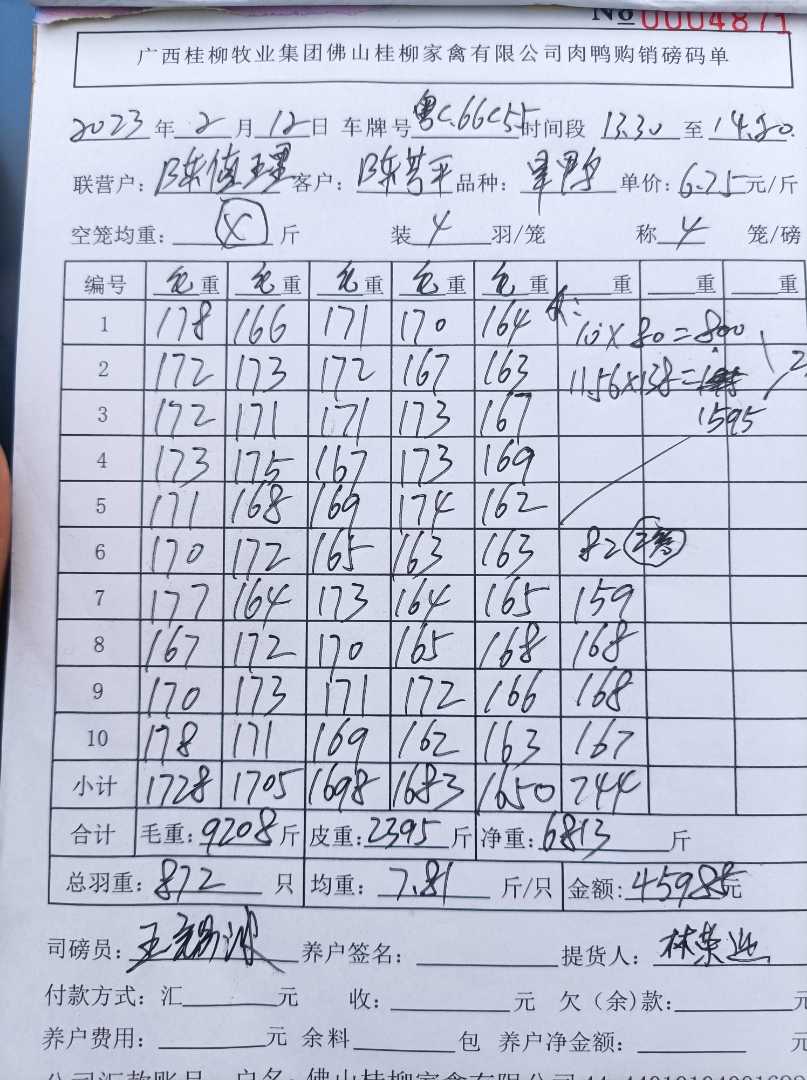 No 0004871
广西桂柳牧业集团佛山桂柳家禽有限公司肉鸭购销磅码单
2023年2月12日 车牌号粤C.66C55时间段 13.30至14.20.
联营户: 客户: 品种: 单价:6.75元/斤
空笼均重: X 斤 装 4 羽/笼 称 4 笼/磅
编号 毛重 毛重 毛重 毛重 毛重 重 重 重
1 178 166 171 170 164 10×80=800
2 172 173 172 167 163 11.56×138=
3 172 171 171 173 167 1595
4 173 175 167 173 169
5 171 168 169 174 162
6 170 172 165 163 163 82
7 177 164 173 164 165 159
8 167 172 170 165 168 168
9 170 173 171 172 166 168
10 178 171 169 162 163 167
小计 1728 1705 1698 1683 1650 744
合计 毛重:9208斤 皮重:2395斤 净重:6813斤
总羽重:872只 均重:7.81斤/只 金额:45985元
司磅员: 养户签名: 提货人:林荣业
付款方式:汇 元 收: 元 欠(余)款: 元
养户费用: 元 余料 包 养户净金额: 元